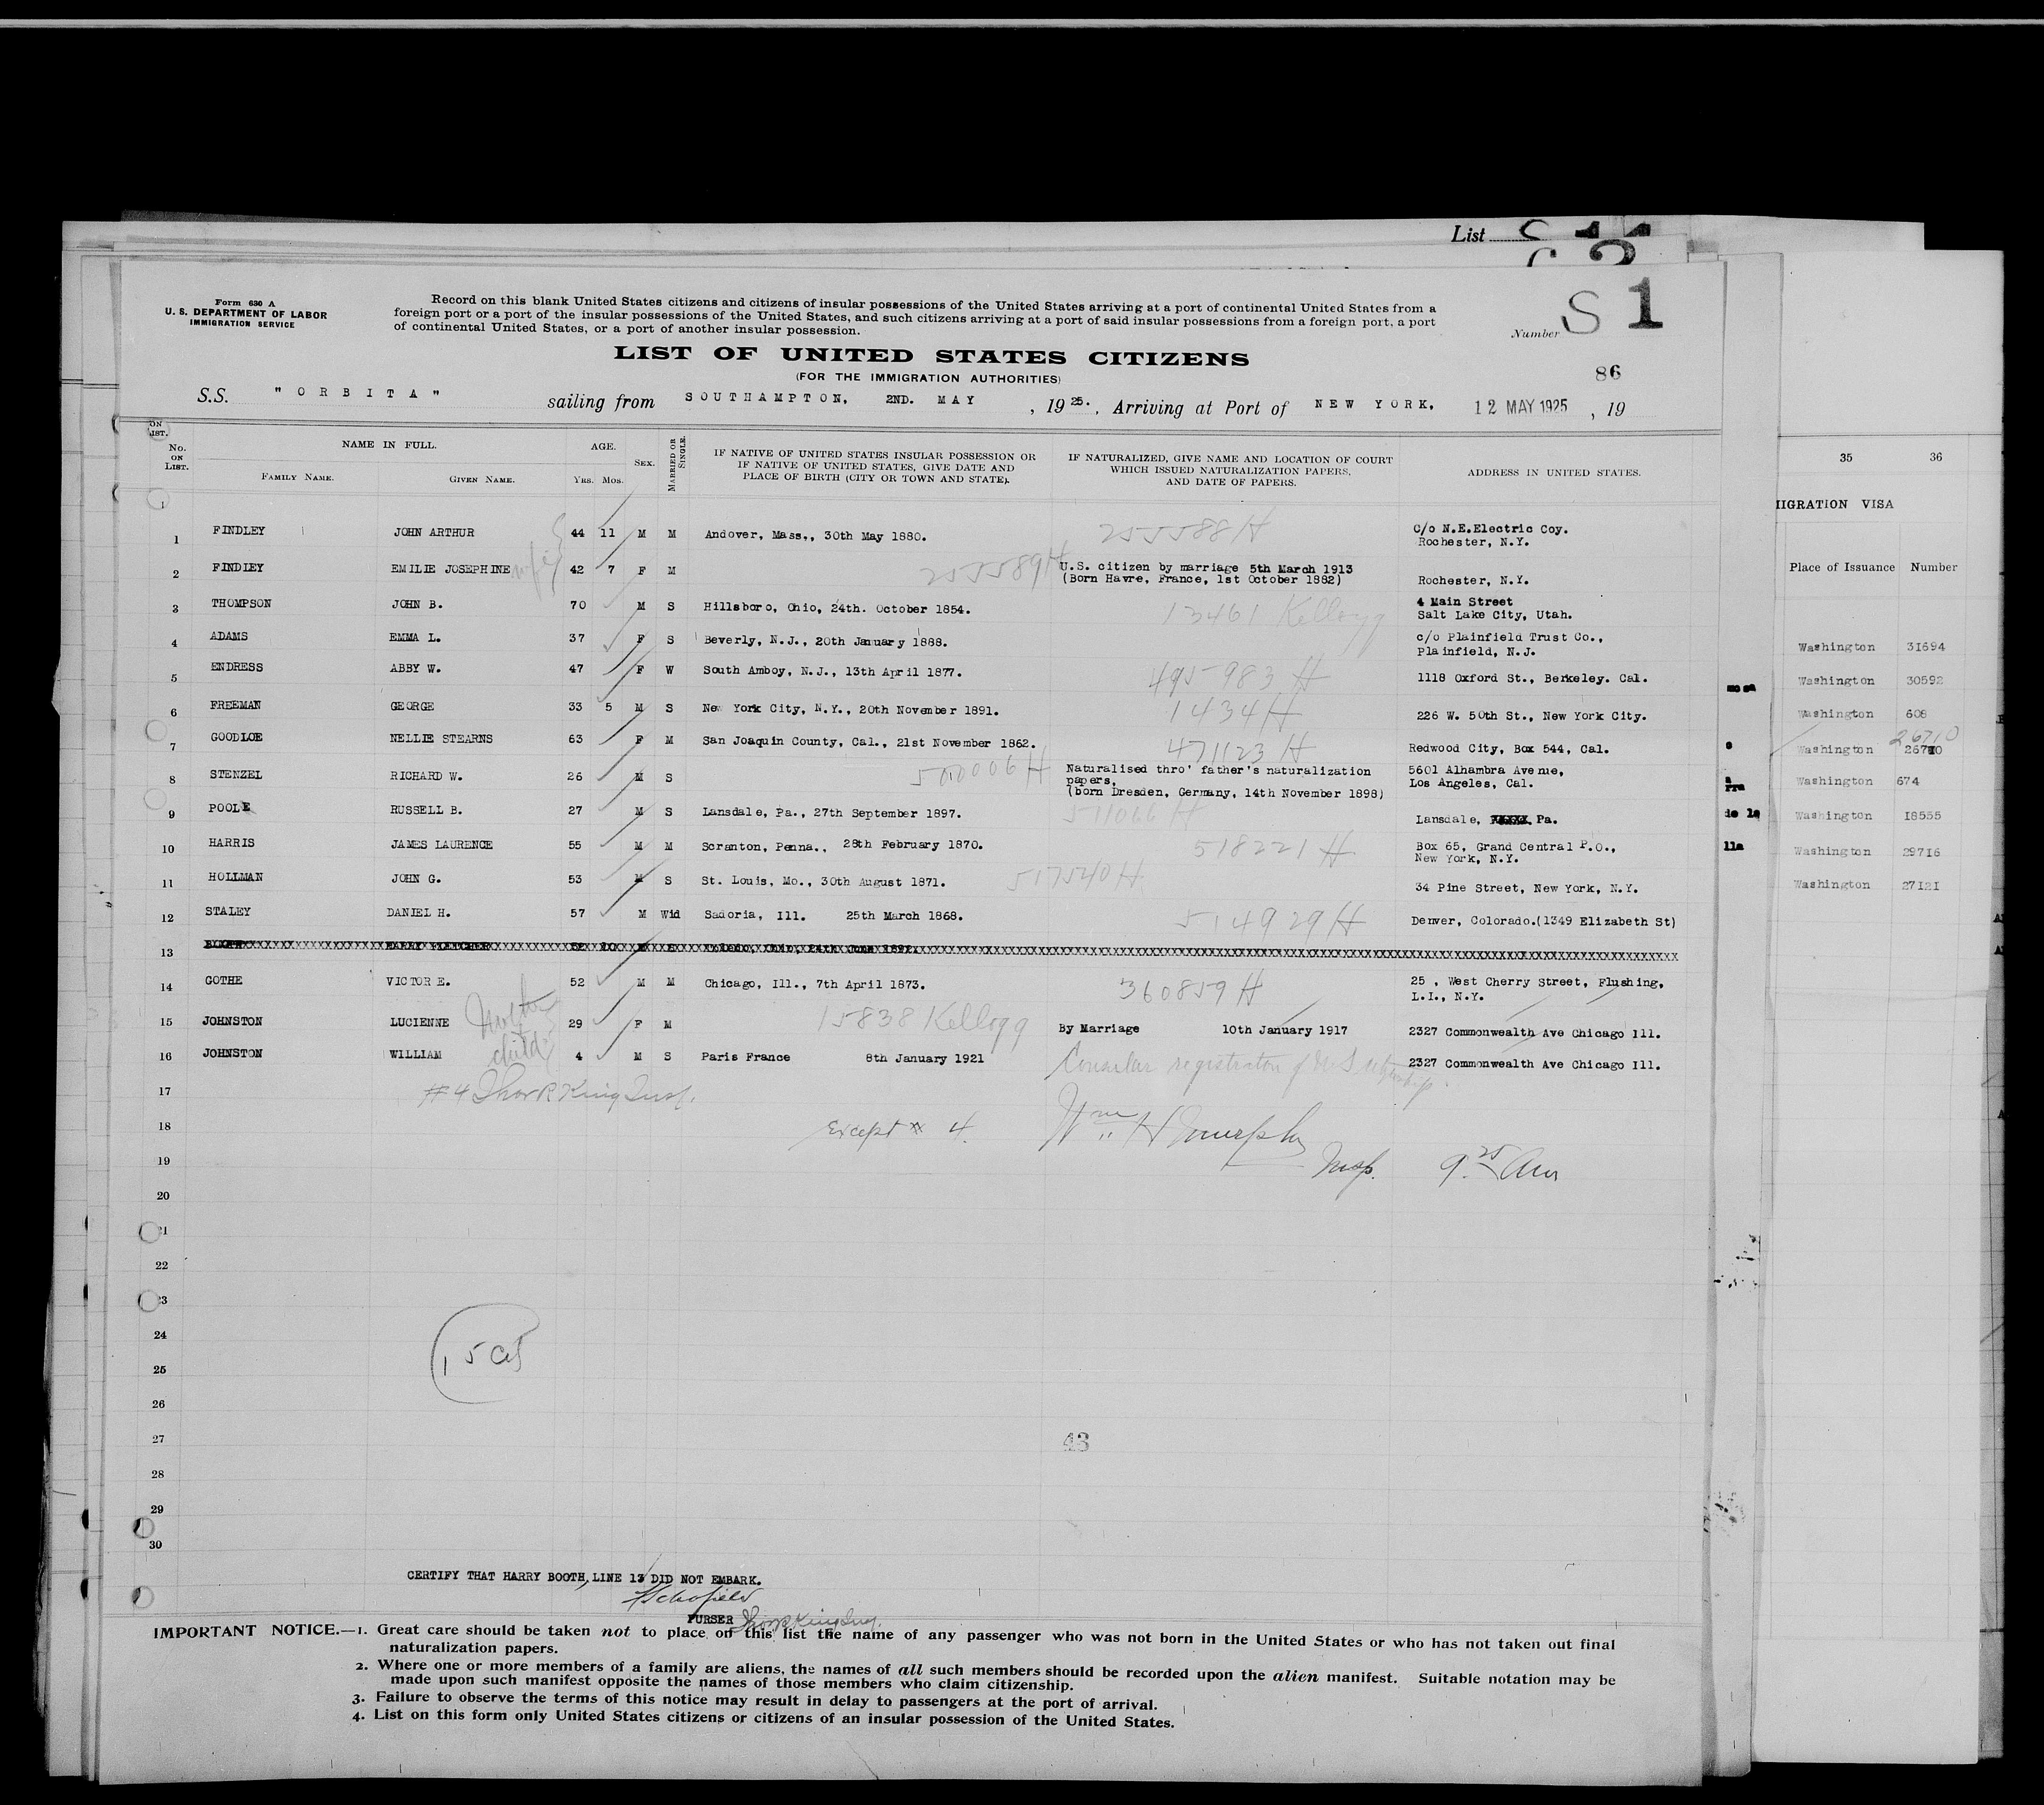 List
S 1
Form 630 A
U. S. DEPARTMENT OF LABOR
IMMIGRATION SERVICE
Record on this blank United States citizens and citizens of insular possessions of the United States arriving at a port of continental United States from a
foreign port or a port of the insular possessions of the United States, and such citizens arriving at a port of said insular possessions from a foreign port, a port
of continental United States, or a port of another insular possession.
Number
LIST OF UNITED STATES CITIZENS
(FOR THE IMMIGRATION AUTHORITIES)
86
S.S. "ORBITA" sailing from SOUTHAMPTON, 2ND. MAY, 1925., Arriving at Port of NEW YORK, 12 MAY 1925, 19
No. ON LIST. NAME IN FULL. AGE. SEX. MARRIED OR SINGLE. IF NATIVE OF UNITED STATES INSULAR POSSESSION OR IF NATIVE OF UNITED STATES, GIVE DATE AND PLACE OF BIRTH (CITY OR TOWN AND STATE). IF NATURALIZED, GIVE NAME AND LOCATION OF COURT WHICH ISSUED NATURALIZATION PAPERS, AND DATE OF PAPERS. ADDRESS IN UNITED STATES.
FAMILY NAME. GIVEN NAME. YRS. MOS.
1 FINDLEY JOHN ARTHUR 44 11 M M Andover, Mass., 30th May 1880. 255588 H C/o N.E.Electric Coy. Rochester, N.Y.
2 FINDLEY EMILIE JOSEPHINE wife 42 7 F M 255589 H U.S. citizen by marriage 5th March 1913 (Born Havre, France, 1st October 1882) Rochester, N.Y.
3 THOMPSON JOHN B. 70 M S Hillsboro, Ohio, 24th. October 1854. 13461 Kellogg 4 Main Street Salt Lake City, Utah.
4 ADAMS EMMA L. 37 F S Beverly, N.J., 20th January 1888. c/o Plainfield Trust Co., Plainfield, N.J.
5 ENDRESS ABBY W. 47 F W South Amboy, N.J., 13th April 1877. 495983 H 1118 Oxford St., Berkeley. Cal.
6 FREEMAN GEORGE 33 5 M S New York City, N.Y., 20th November 1891. 1434 H 226 W. 50th St., New York City.
7 GOODLOE NELLIE STEARNS 63 F M San Joaquin County, Cal., 21st November 1862. 471123 H Redwood City, Box 544, Cal.
8 STENZEL RICHARD W. 26 M S 500006 H Naturalised thro' father's naturalization papers, (born Dresden, Germany, 14th November 1898) 5601 Alhambra Avenue, Los Angeles, Cal.
9 POOLE RUSSELL B. 27 M S Lansdale, Pa., 27th September 1897. 511066 H Lansdale, Pa.
10 HARRIS JAMES LAURENCE 55 M M Scranton, Penna., 28th February 1870. 518221 H Box 65, Grand Central P.O., New York, N.Y.
11 HOLLMAN JOHN G. 53 M S St. Louis, Mo., 30th August 1871. 517540 H 34 Pine Street, New York, N.Y.
12 STALEY DANIEL H. 57 M Wid Sadoria, Ill. 25th March 1868. 514929 H Denver, Colorado.(1349 Elizabeth St)
13 BOOTH HARRY FLETCHER 32 10 M S Toledo, Ohio, 24th June 1892.
14 GOTHE VICTOR E. 52 M M Chicago, Ill., 7th April 1873. 360859 H 25 , West Cherry Street, Flushing, L.I., N.Y.
15 JOHNSTON LUCIENNE Mother 29 F M 15838 Kellogg By Marriage 10th January 1917 2327 Commonwealth Ave Chicago Ill.
16 JOHNSTON WILLIAM child 4 M S Paris France 8th January 1921 Consular registration of U S citizenship. 2327 Commonwealth Ave Chicago Ill.
17 #4 Thor R King Insp.
18 Except # 4. Wm H Murphy
19 Insp. 9.25 Am
20
21
22
23
24
25 15 Cit
26
27 43
28
29
30
CERTIFY THAT HARRY BOOTH, LINE 13 DID NOT EMBARK.
Schofield
PURSER Thor R King Insp.
IMPORTANT NOTICE.—1. Great care should be taken not to place on this list the name of any passenger who was not born in the United States or who has not taken out final
naturalization papers.
2. Where one or more members of a family are aliens, the names of all such members should be recorded upon the alien manifest. Suitable notation may be
made upon such manifest opposite the names of those members who claim citizenship.
3. Failure to observe the terms of this notice may result in delay to passengers at the port of arrival.
4. List on this form only United States citizens or citizens of an insular possession of the United States.
35 36
IIGRATION VISA
Place of Issuance Number
Washington 31694
Washington 30592
Washington 608
26710
Washington 26710
Washington 674
Washington 18555
Washington 29716
Washington 27121